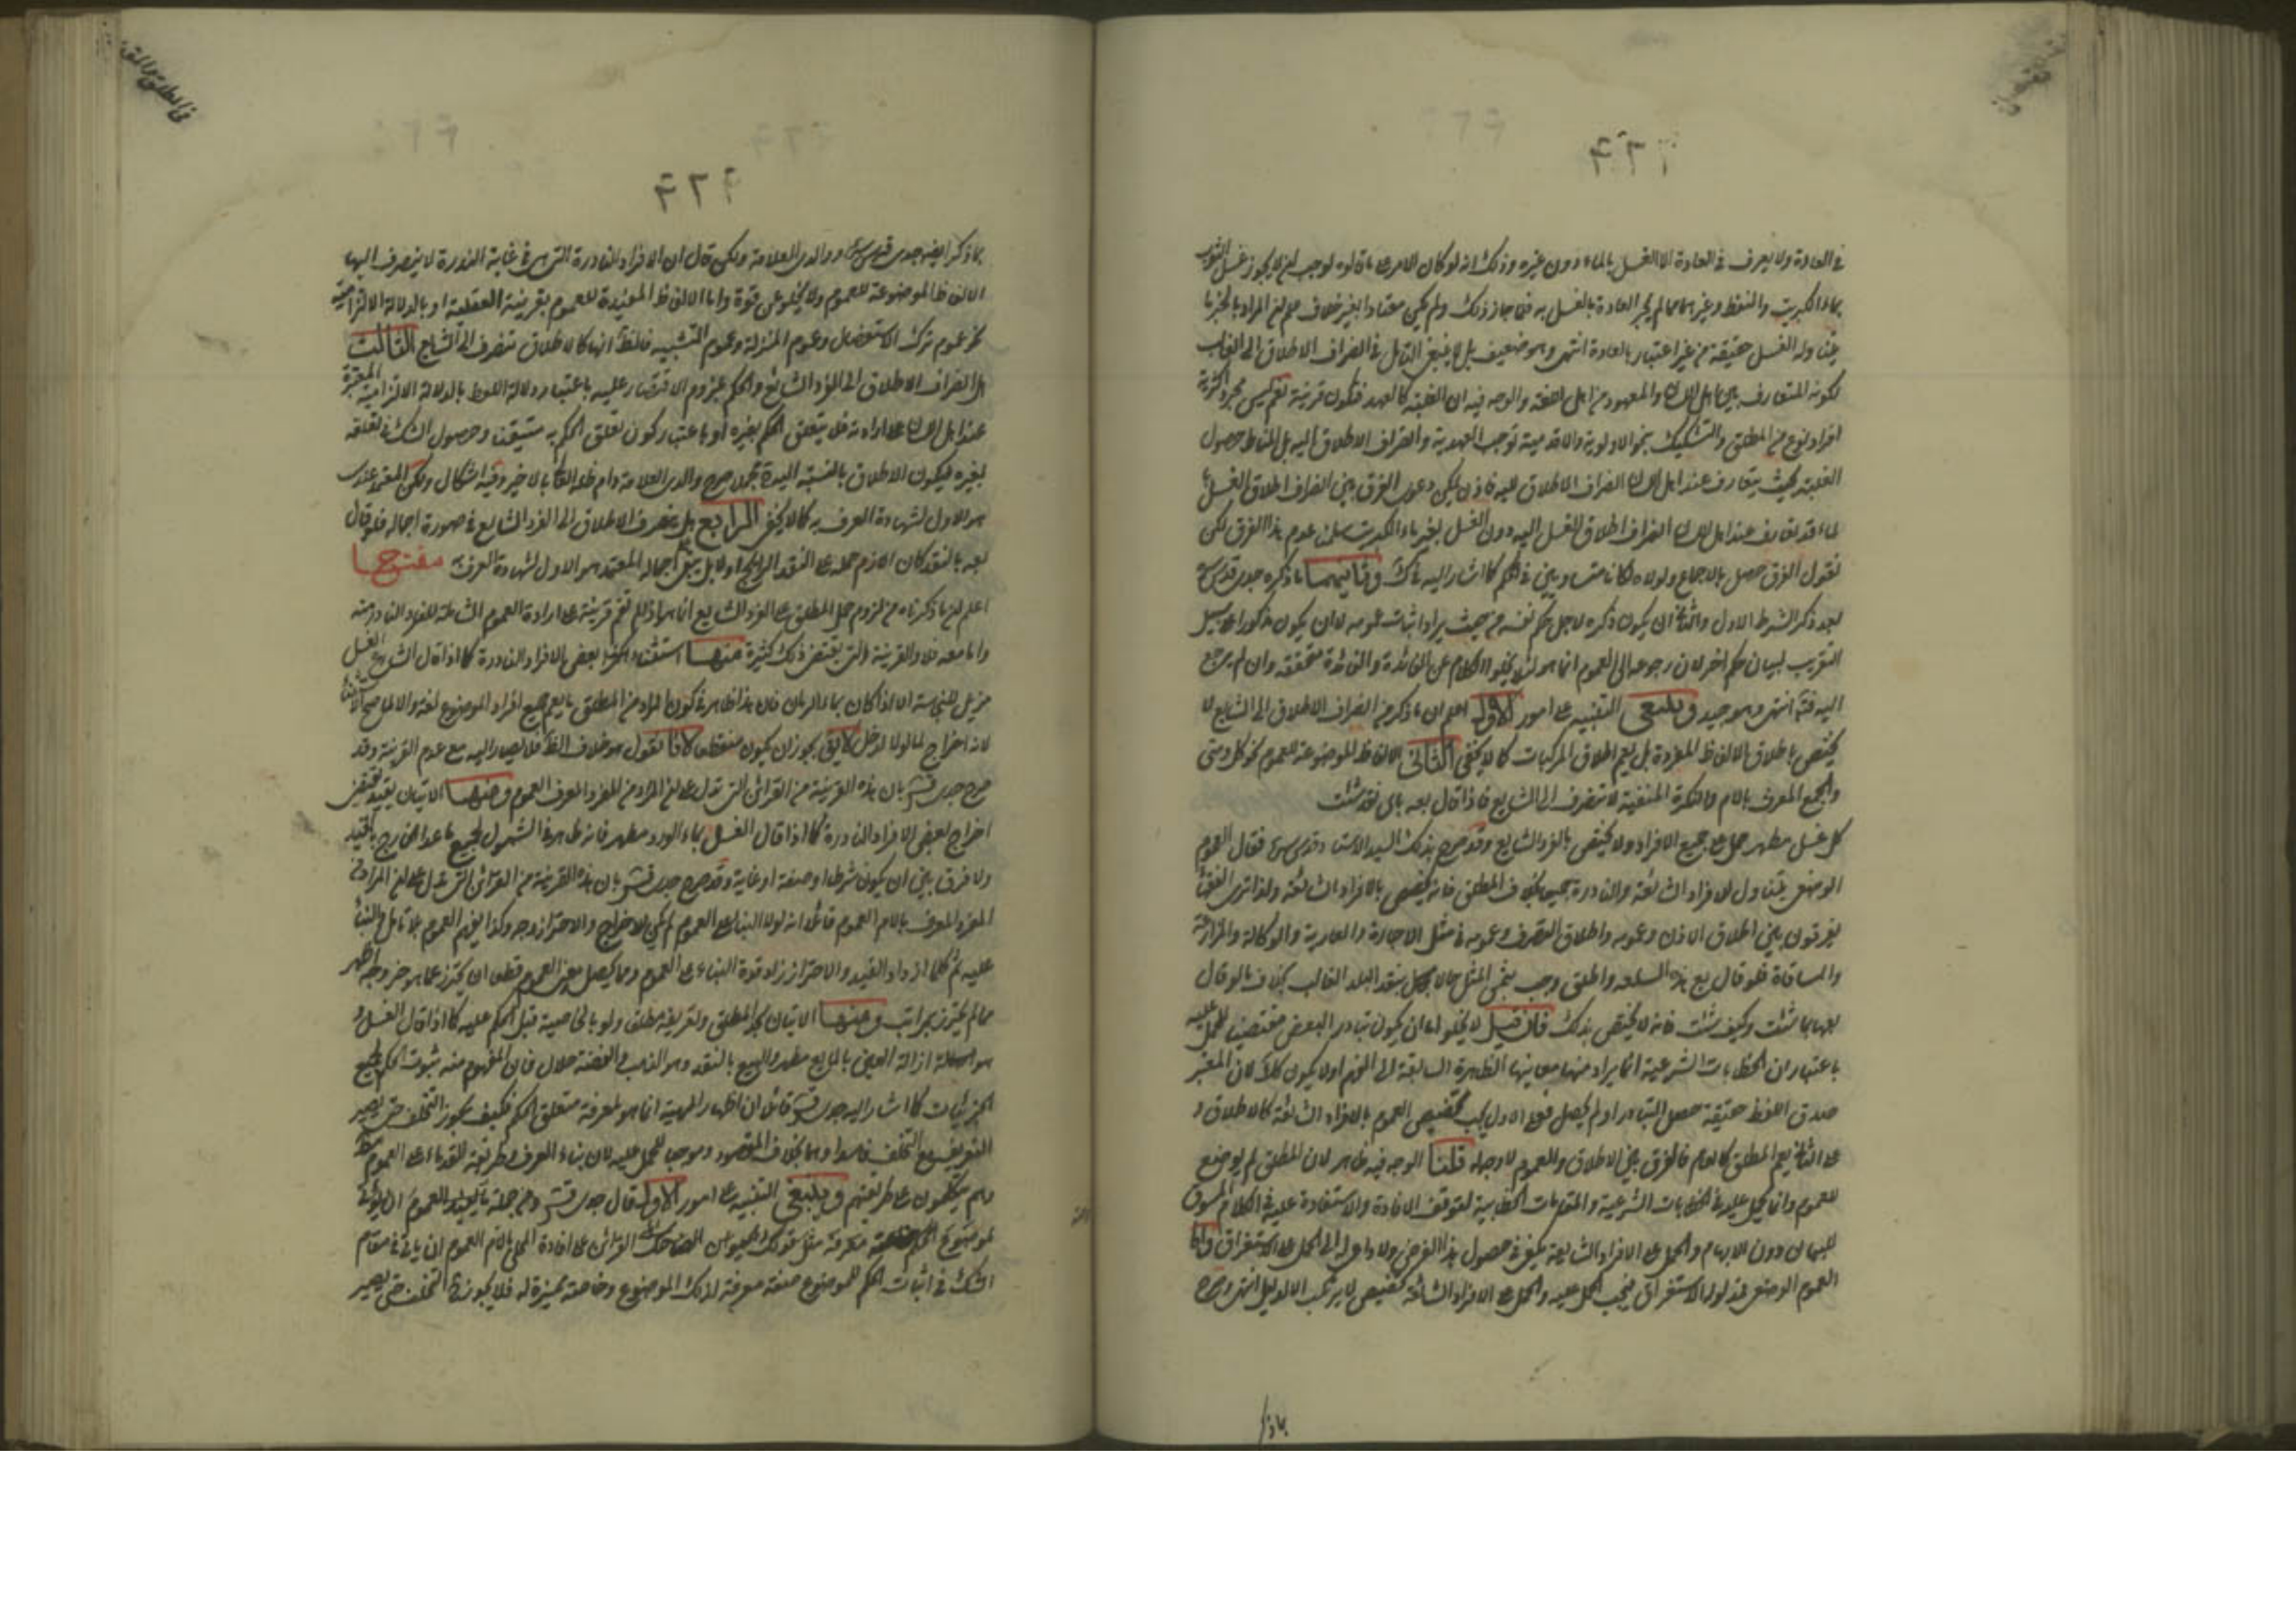 في العادة ولا يعرف في العادة الا الغسل بالماء دون غيره وذلك انه لو كان الامر على ما قالوه لوجب ان لا يجوز غسل الثوب
بماء الكبريت والنفط وغيرهما مما لم يجر العادة بالغسل به فلما جاز ذلك ولم يكن معتادا بغير خلاف علم ان المراد بالخبر ما
يتناوله الغسل حقيقة من غير اعتبار بالعادة انتهى وهو ضعيف بل لا ينبغي التامل في انصراف الاطلاق الى الغالب
لكونه المتعارف بين اهل اللسان والمعهود من اهل اللغة والوجه فيه ان الغلبة كالعهد فتكون قرينة نعم ليس مجرد اكثرية
افراد نوع من المطلق والتشكيك بنحو الاولوية والاقدمية توجب العهدية وانصراف الاطلاق اليه بل المناط حصول
الغلبة بحيث يتعارف عند اهل اللسان انصراف الاطلاق اليه فاذن يمكن دعوى الفرق بين انصراف اطلاق الغسل
لماء قد تعارف عند اهل اللسان انصراف اطلاق الغسل اليه دون الغسل بغير ماء الكبريت سلمنا عدم هذا الفرق لكن
نقول الفرق حصل بالاجماع ولولاه لكانا متساويين في الحكم كما اشار اليه في ك وثانيهما ما ذكره جدي قدس سره
بعد ذكر الشرط الاول والثاني ان يكون ذكره لاجل حكم نفسه من حيث يراد اثبات عمومه لا ان يكون مذكورا على سبيل
التقريب لبيان حكم اخر لان رجوعه الى العموم انما هو لئلا يخلو الكلام عن الفائدة والفائدة متحققة وان لم يرجع
اليه فتم انتهى وهو جيد وينبغي التنبيه على امور الاول اعلم ان ما ذكر من انصراف الاطلاق الى الشايع لا
يختص باطلاق الالفاظ المفردة بل يعم اطلاق المركبات كما لا يخفى الثاني الالفاظ الموضوعة للعموم نحو كل ومتى
والجمع المعرف باللام والنكرة المنفية لا تنصرف الى الشايع فاذا قال بعه باي نقد شئت
كل غسل مطهر حمل على جميع الافراد ولا يختص بالفرد الشايع وقد صرح بذلك السيد الاستاد قدس سره فقال العموم
الوضعي يتناول الافراد الشائعة والنادرة جميعا بخلاف المطلق فانه يختص بالافراد الشائعة ولذا ترى الفقهاء
يفرقون بين اطلاق الاذن وعمومه واطلاق التصرف وعمومه في مثل الاجارة والعارية والوكالة والمزارعة
والمساقاة فلو قال بع هذه السلعة واطلق وجب بثمن المثل حالا بنقد البلد الغالب بخلاف ما لو قال
بعها بما شئت وكيف شئت فانه لا يختص بذلك فان قيل لا يخلو اما ان يكون تبادر البعض مقتضيا للحمل عليه
باعتبار ان الخطابات الشرعية انما يراد منها معانيها الظاهرة السابقة الى الفهم او لا يكون كك لان المعتبر
صدق اللفظ حقيقة حصل التبادر او لم يحصل فعلى الاول يجب تخصيص العموم بالافراد الشائعة كالاطلاق و
على الثاني يعم المطلق كالعام فالفرق بين الاطلاق والعموم لا وجه له قلنا الوجه فيه ظاهر لان المطلق لم يوضع
للعموم وانما يحمل عليه في الخطابات الشرعية والمقامات الخطابية لتوقف الافادة والاستفادة عليه في الكلام المسوق
للبيان دون الابهام والحمل على الافراد الشايعة يكفي في حصول هذا الغرض ولا داعي له الى الحمل على الاستغراق واما
العموم الوضعي فمدلوله الاستغراق فيجب الحمل عليه والحمل على الافراد الشائعة تخصيص لا يرتكب الا لدليل انتهى وصرح
بما ذكر
في المطلق والمقيد
بما ذكر ايضا جدي قدس سره ووالدي العلامة ولكن قال ان الافراد النادرة التي هي في غاية الندرة لا ينصرف اليها
الالفاظ الموضوعة للعموم ولا يخلو عن قوة واما الالفاظ المفيدة للعموم بقرينة العقلية او بالدلالة الالتزامية
نحو عموم ترك الاستفصال وعموم المنزلة وعموم التشبيه فالظ انها كالاطلاق تنصرف الى الشايع الثالث
هل انصراف الاطلاق الى الفرد الشايع والحكم بلزوم الاقتصار عليه باعتبار دلالة اللفظ بالدلالة الالتزامية المعتبرة
عند اهل اللسان على ارادته فلا يتعلق الحكم بغيره او باعتبار كون تعلق الحكم به متيقنا وحصول الشك في تعلقه
بغيره فيكون الاطلاق بالنسبة اليه مجملا صرح والدي العلامة دام ظله العالي بالاخير وفيه اشكال ولكن المعتمد عندي
هو الاول لشهادة العرف به كما لا يخفى الرابع هل ينصرف الاطلاق الى الفرد الشايع في صورة اجماله فلو قال
بعه بالنقد كان اللازم حمله على النقد الرايج او لا بل يبقى اجماله المعتمد هو الاول لشهادة العرف مفتوحا
اعلم ان ما ذكرناه من لزوم حمل المطلق على الفرد الشايع انما هو اذا لم تقم قرينة على ارادة العموم الشامل للفرد النادر منه
واما معه فلا والقرينة التي يقتضي ذلك كثيرة منها استثناء بعض الافراد النادرة كما اذا قال الشارع الغسل
مزيل للنجاسة الا اذا كان بماء الرمان فان هذا ظاهر في كون المراد من المطلق ما يعم جميع افراد الموضوع لغة والا لما صح الاستثناء
لانه اخراج لما لولاه لدخل لا يق يجوز ان يكون منقطعا لانا نقول هو خلاف الظ فلا يصار اليه مع عدم القرينة وقد
صرح جدي قدس سره بان هذه القرينة من القرائن التي تدل على ان المراد من المفرد المعرف العموم ومنها الاتيان بقيد يقتضي
اخراج بعض الافراد النادرة كما اذا قال الغسل بماء الورد مطهر فانه ظاهر في الشمول لجميع ما عدا الخارج بالقيد
ولا فرق بين ان يكون شرطا او صفة او غاية وقد صرح جدي قدس سره بان هذه القرينة من القرائن التي تدل على ان المراد من
المفرد المعرف باللام العموم قائلا انه لولا البناء على العموم لم يكن للاخراج والاحتراز وجه وكذا يفهم العموم بلا تامل والبناء
عليه ثم كلما ازداد القيد والاحتراز زاد قوة البناء على العموم وربما يحصل من العموم قطعا ان يحترز عما هو خروجه اظهر
مما لم يحترز بمراتب ومنها الاتيان بحد المطلق وتعريفه مطلقا ولو بالخاصية قبل الحكم عليه كما اذا قال الغسل و
هو ازالة العين بالمايع مطهر والبيع بالنقد وهو الذهب والفضة حلال فان المفهوم منه ثبوت الحكم لجميع
الجزئيات كما اشار اليه جدي قدس سره قائلا ان اظهار المهية انما هو لمعرفة متعلق الحكم فكيف يجوز التخلف حتى يصير
التعريف مع التخلف فاسدا وهما بخلاف المقصود وموجبا للحمل عليه لان بناء العرف وطريقة الفقهاء على العموم
وهم يتكلمون على طريقتهم وينبغي التنبيه على امور الاول قال جدي قدس سره ومن جملة ما يفيد العموم ان يؤتى
لموضوع الحكم معرفة مثل قولك الحيوان الضاحك القرائن على افادة المحلى باللام العموم ان ياتي في مقام
الشك في اثبات الحكم للموضوع صفة معرفة لذلك الموضوع وخاصة مميزة له فلا يجوز التخلف حتى يصير